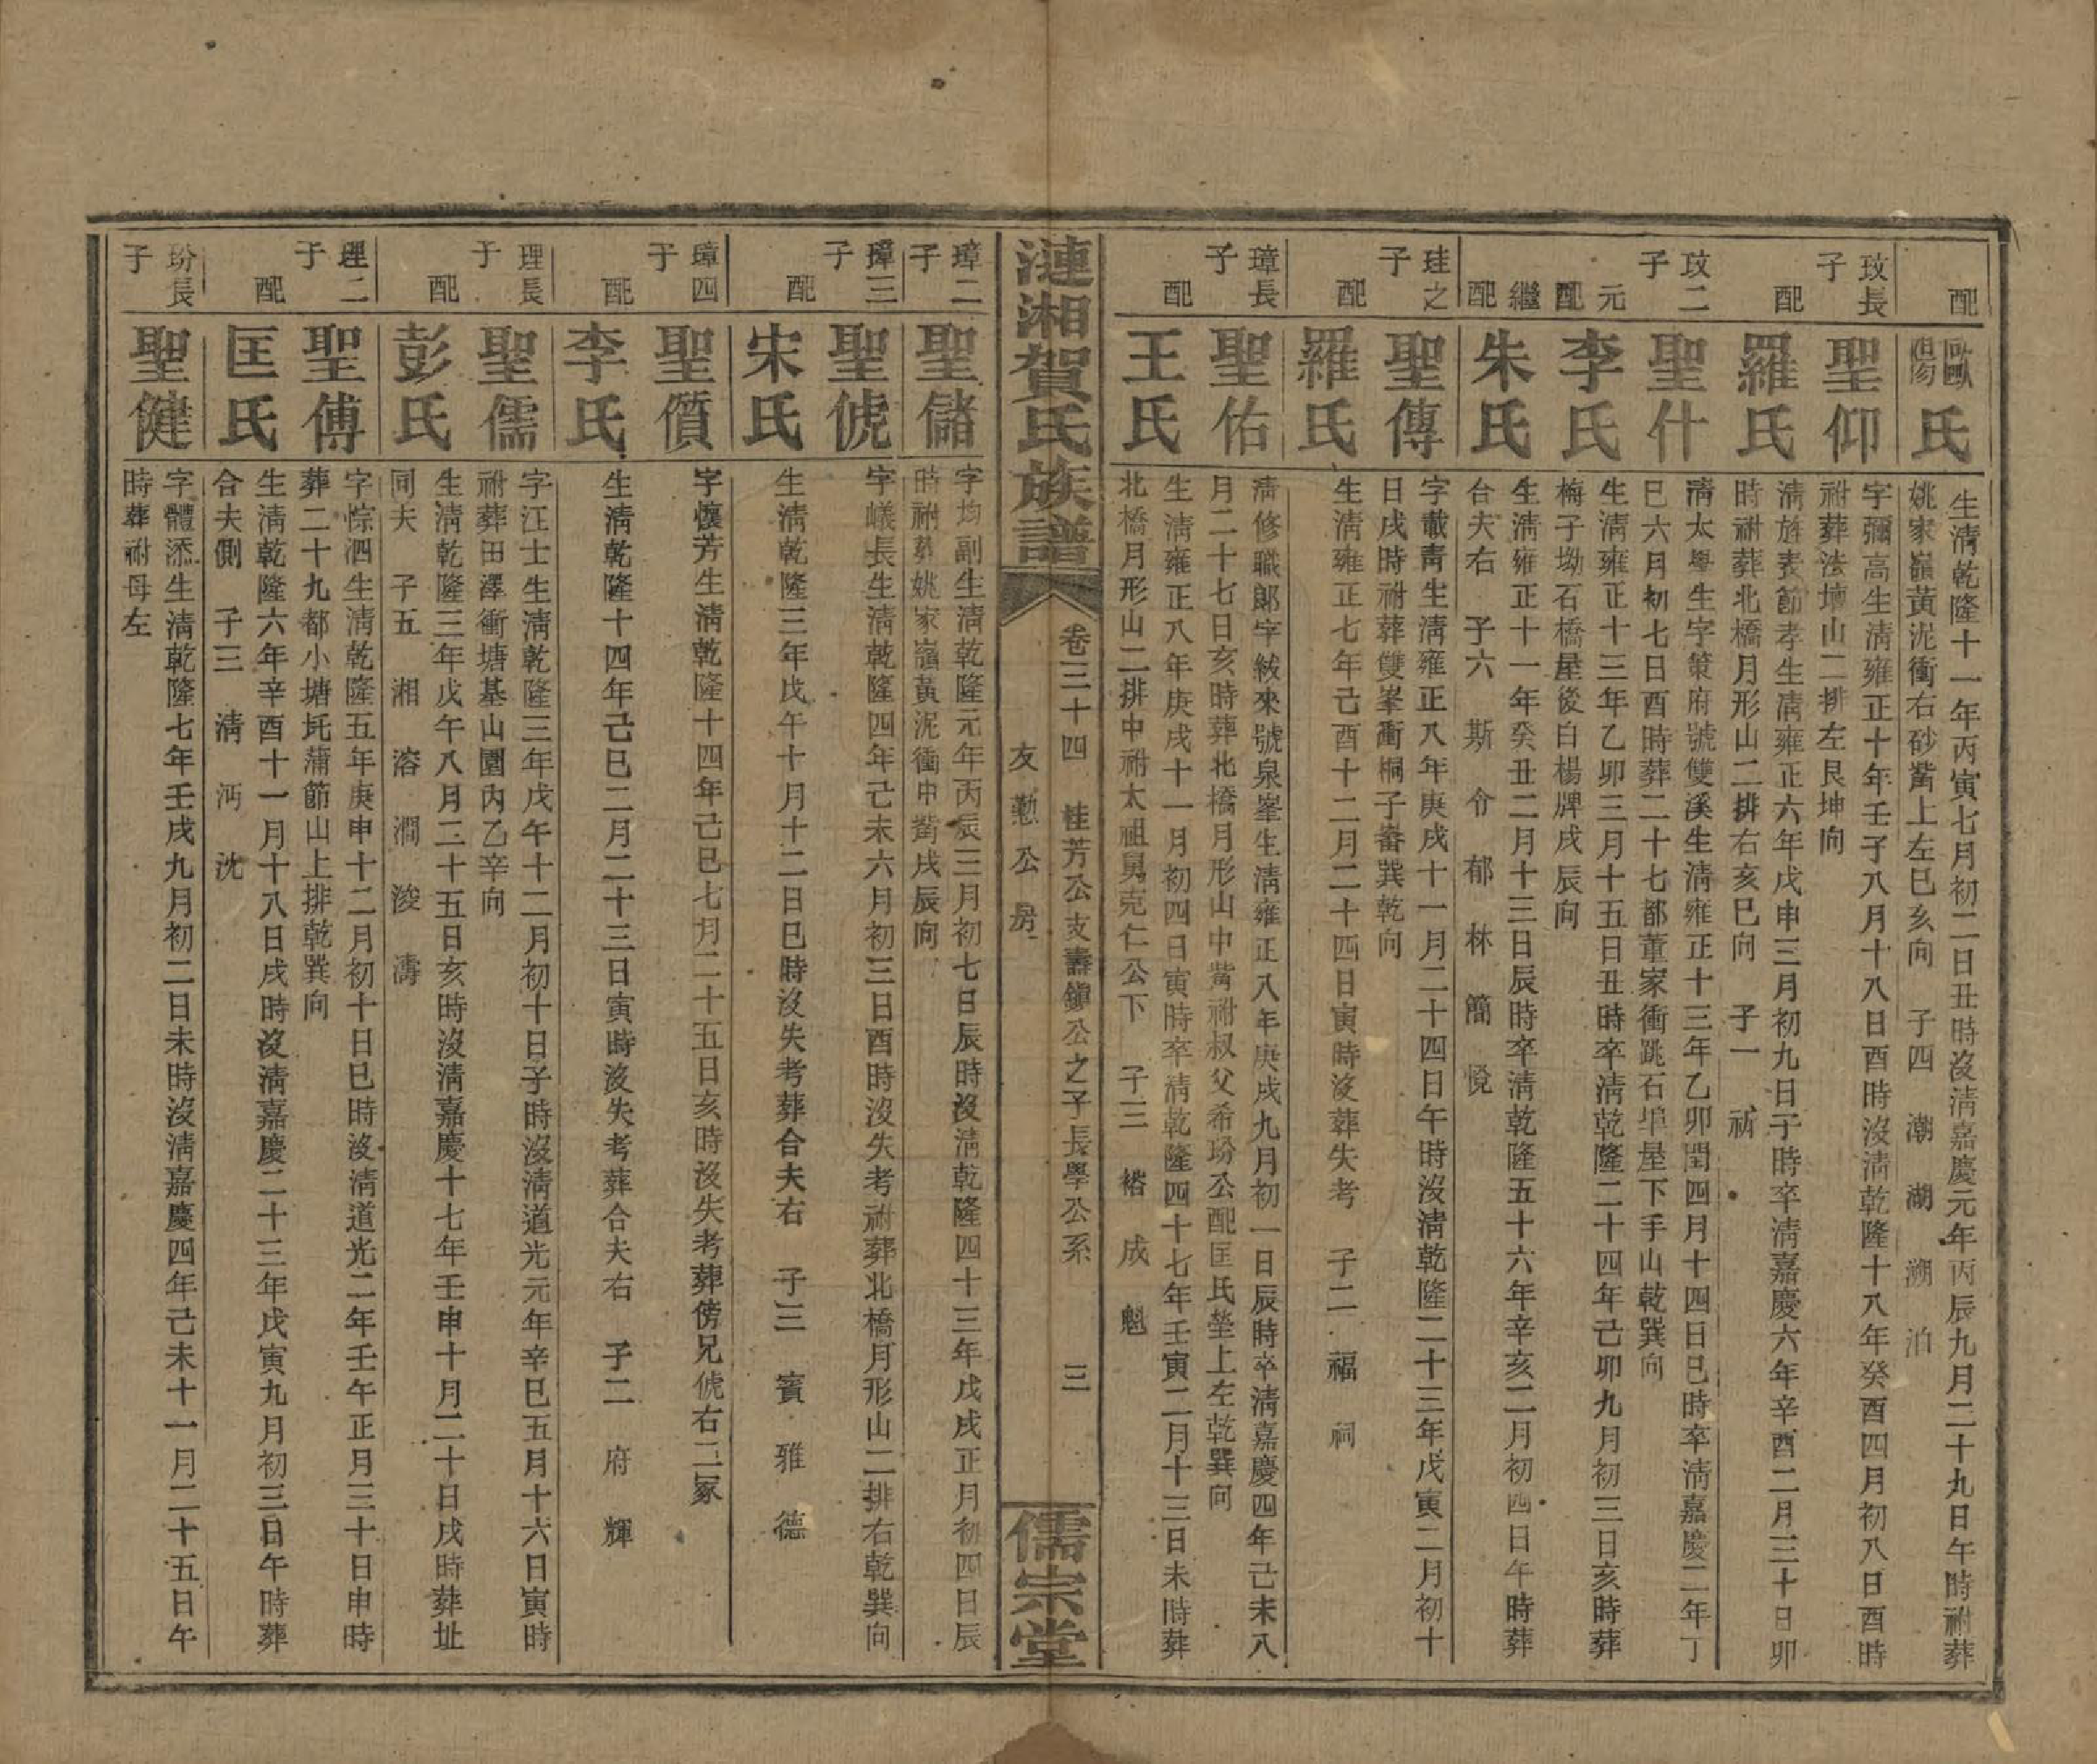 配
歐陽氏
生清乾隆十一年丙寅七月初二日丑時沒清嘉慶元年丙辰九月二十九日午時祔葬
姚家嶺黃泥衝右砂嘴上左巳亥向 子四 潮 湖 溯 泊
玫長子
聖仰
字彌高生清雍正十年壬子八月十八日酉時沒清乾隆十八年癸酉四月初八日酉時
祔葬法壇山二排左艮坤向
配
羅氏
清旌表節孝生清雍正六年戊申三月初九日子時卒清嘉慶六年辛酉二月三十日卯
時祔葬北橋月形山二排右亥巳向 子一 祊
玫二子
聖什
清太學生字策府號雙溪生清雍正十三年乙卯閏四月十四日巳時卒清嘉慶二年丁
巳六月初七日酉時葬二十七都董家衝跳石埠屋下手山乾巽向
元配
李氏
生清雍正十三年乙卯三月十五日丑時卒清乾隆二十四年己卯九月初三日亥時葬
梅子坳石橋屋後白楊牌戌辰向
繼配
朱氏
生清雍正十一年癸丑二月十三日辰時卒清乾隆五十六年辛亥二月初四日午時葬
合夫右 子六 斯 令 郁 林 簡 悅
珪之子
聖傳
字載青生清雍正八年庚戌十一月二十四日午時沒清乾隆二十三年戊寅二月初十
日戌時祔葬雙峯衝桐子崙巽乾向
配
羅氏
生清雍正七年己酉十二月二十四日寅時沒葬失考 子二 福 祠
璋長子
聖佑
清修職郎字紱來號泉峯生清雍正八年庚戌九月初一日辰時卒清嘉慶四年己未八
月二十七日亥時葬北橋月形山中嘴祔叔父希玢公配匡氏塋上左乾巽向
配
王氏
生清雍正八年庚戌十一月初四日寅時卒清乾隆四十七年壬寅二月十三日未時葬
北橋月形山二排中祔太祖舅克仁公下 子三 褣 成 魁
漣湘賀氏族譜
卷三十四 桂芳公支壽鎮公之子長學公系 三
友懃公房
儒宗堂
璋二子
聖儲
字均副生清乾隆元年丙辰三月初七日辰時沒清乾隆四十三年戊戌正月初四日辰
時祔葬姚家嶺黃泥衝中嘴戌辰向
璋三子
聖俿
字嶬長生清乾隆四年己未六月初三日酉時沒失考祔葬北橋月形山二排右乾巽向
配
宋氏
生清乾隆三年戊午十月十二日巳時沒失考葬合夫右 子三 賓 雅 德
璋四子
聖儨
字懷芳生清乾隆十四年己巳七月二十五日亥時沒失考葬傍兄俿右二冢
配
李氏
生清乾隆十四年己巳二月二十三日寅時沒失考葬合夫右 子二 府 輝
理長子
聖儒
字江士生清乾隆三年戊午十二月初十日子時沒清道光元年辛巳五月十六日寅時
祔葬田澤衝塘基山園內乙辛向
配
彭氏
生清乾隆三年戊午八月二十五日亥時沒清嘉慶十七年壬申十月二十日戌時葬址
同夫 子五 湘 溶 澗 浚 濤
理二子
聖傅
字悰泗生清乾隆五年庚申十二月初十日巳時沒清道光二年壬午正月三十日申時
葬二十九都小塘坉蒲節山上排乾巽向
配
匡氏
生清乾隆六年辛酉十一月十八日戌時沒清嘉慶二十三年戊寅九月初三日午時葬
合夫側 子三 清 沔 沈
玢長子
聖健
字體添生清乾隆七年壬戌九月初二日未時沒清嘉慶四年己未十一月二十五日午
時葬祔母左